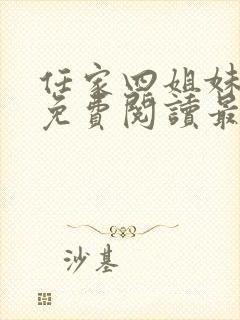 任家四姐妹
免費閱讀最
沙基